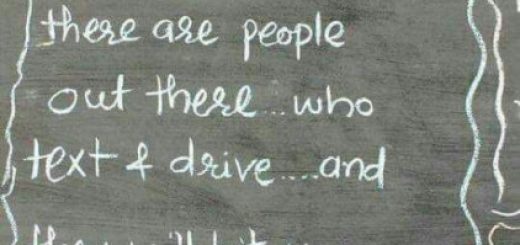 there are people
out there...who
text & drive....and